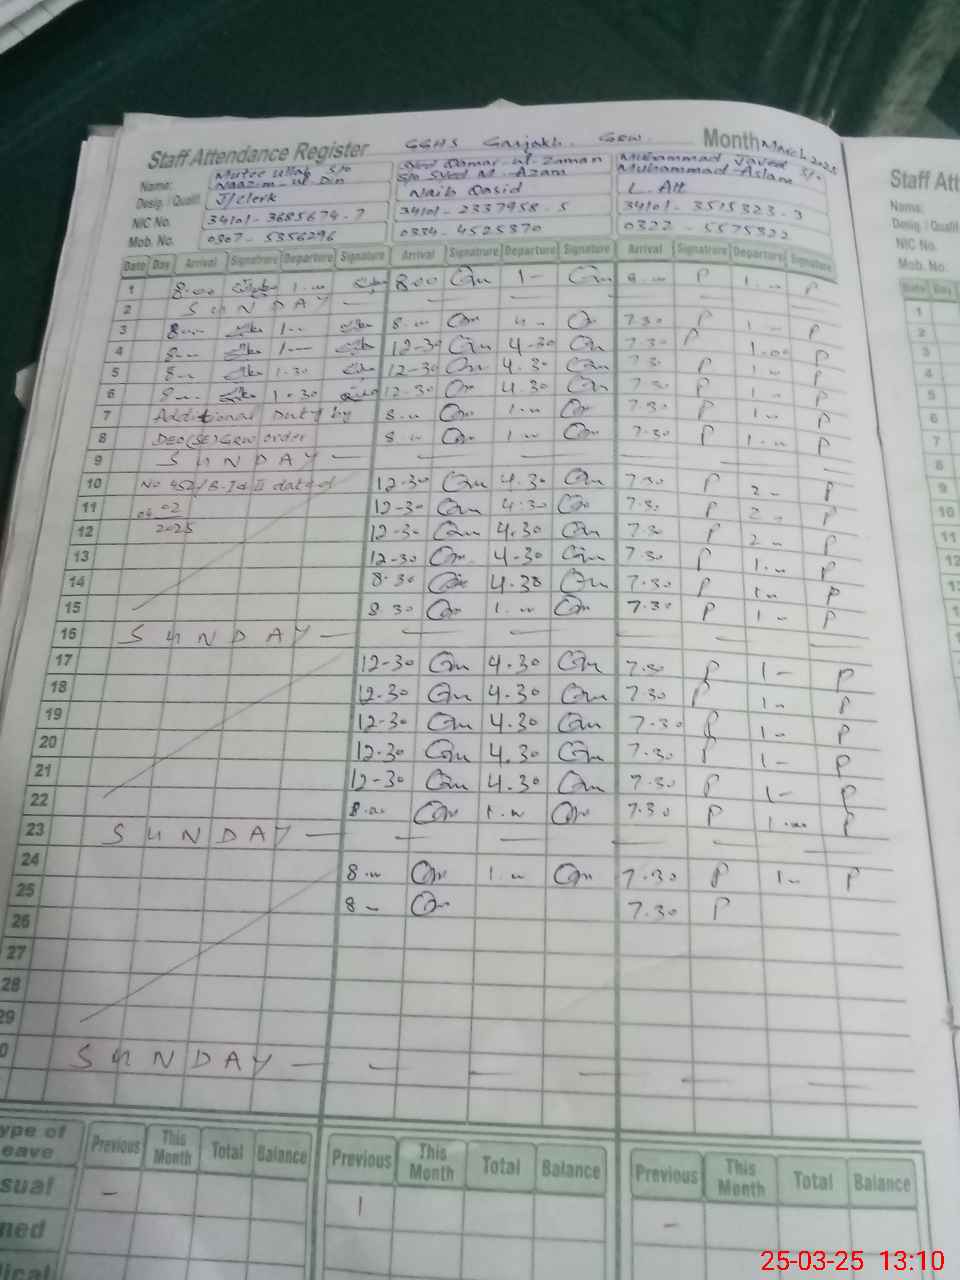 Staff Attendance Register GGHS Garjakh. GRW. Month March 2025
Name: Mutee ullah S/o Nazim-ul Din Syed Qamar-ul-Zaman S/o Syed M. Azam Muhammad Javed S/o Muhammad Aslam
Desig. / Qualifi J/clerk Naib Qasid L. Att
NIC No. 34101-3685674-7 34101-2337958-5 34101-3515323-3
Mob. No. 0307-5356296 0334-4525370 0322-5575322
Date Day Arrival Signature Departure Signature Arrival Signatrure Departure Signature Arrival Signatrure Departure Signature
1 8.00 1.00 8.00 1- P 1.00 P
2 SUNDAY
3 8.00 1.00 8.00 7.30 P 1.00 P
4 8.00 1.00 12-30 4-30 7.30 P 1.00 P
5 8.00 1.30 12-30 4.30 7.30 P 1.00 P
6 8.00 1.30 12-30 4.30 7.30 P 1.00 P
7 Additional Duty by 8.00 1.00 7.30 P 1.00 P
8 DEO(SE)GRW order 8.00 1.00 7.30 P 1.00 P
9 SUNDAY
10 No 452/B-Id II dated 12-30 4.30 7.30 P 2.00 P
11 04 02 12-30 4.30 7.30 P 2.00 P
12 2025 12-30 4.30 7.30 P 2.00 P
13 12-30 4-30 7.30 P 1.00 P
14 8.30 4.30 7.30 P 1.00 P
15 8.30 1.00 7.30 P 1- P
16 SUNDAY
17 12-30 4.30 7.30 P 1- P
18 12.30 4.30 7.30 P 1- P
19 12-30 4.30 7.30 P 1- P
20 12.30 4.30 7.30 P 1- P
21 12-30 4.30 7.30 P 1- P
22 8.00 1.00 7.30 P 1.00 P
23 SUNDAY
24 8.00 1.00 7.30 P 1- P
25 8- 7.30 P
26
27
28
29
0 SUNDAY
ype of eave Previous This Month Total Balance Previous This Month Total Balance Previous This Month Total Balance
sual - 1 -
ned
ical
Staff Att
Name:
Desig. / Qualifi
NIC No.
Mob. No.
Date Day
1
2
3
4
5
6
7
8
9
10
11
12
25-03-25 13:10